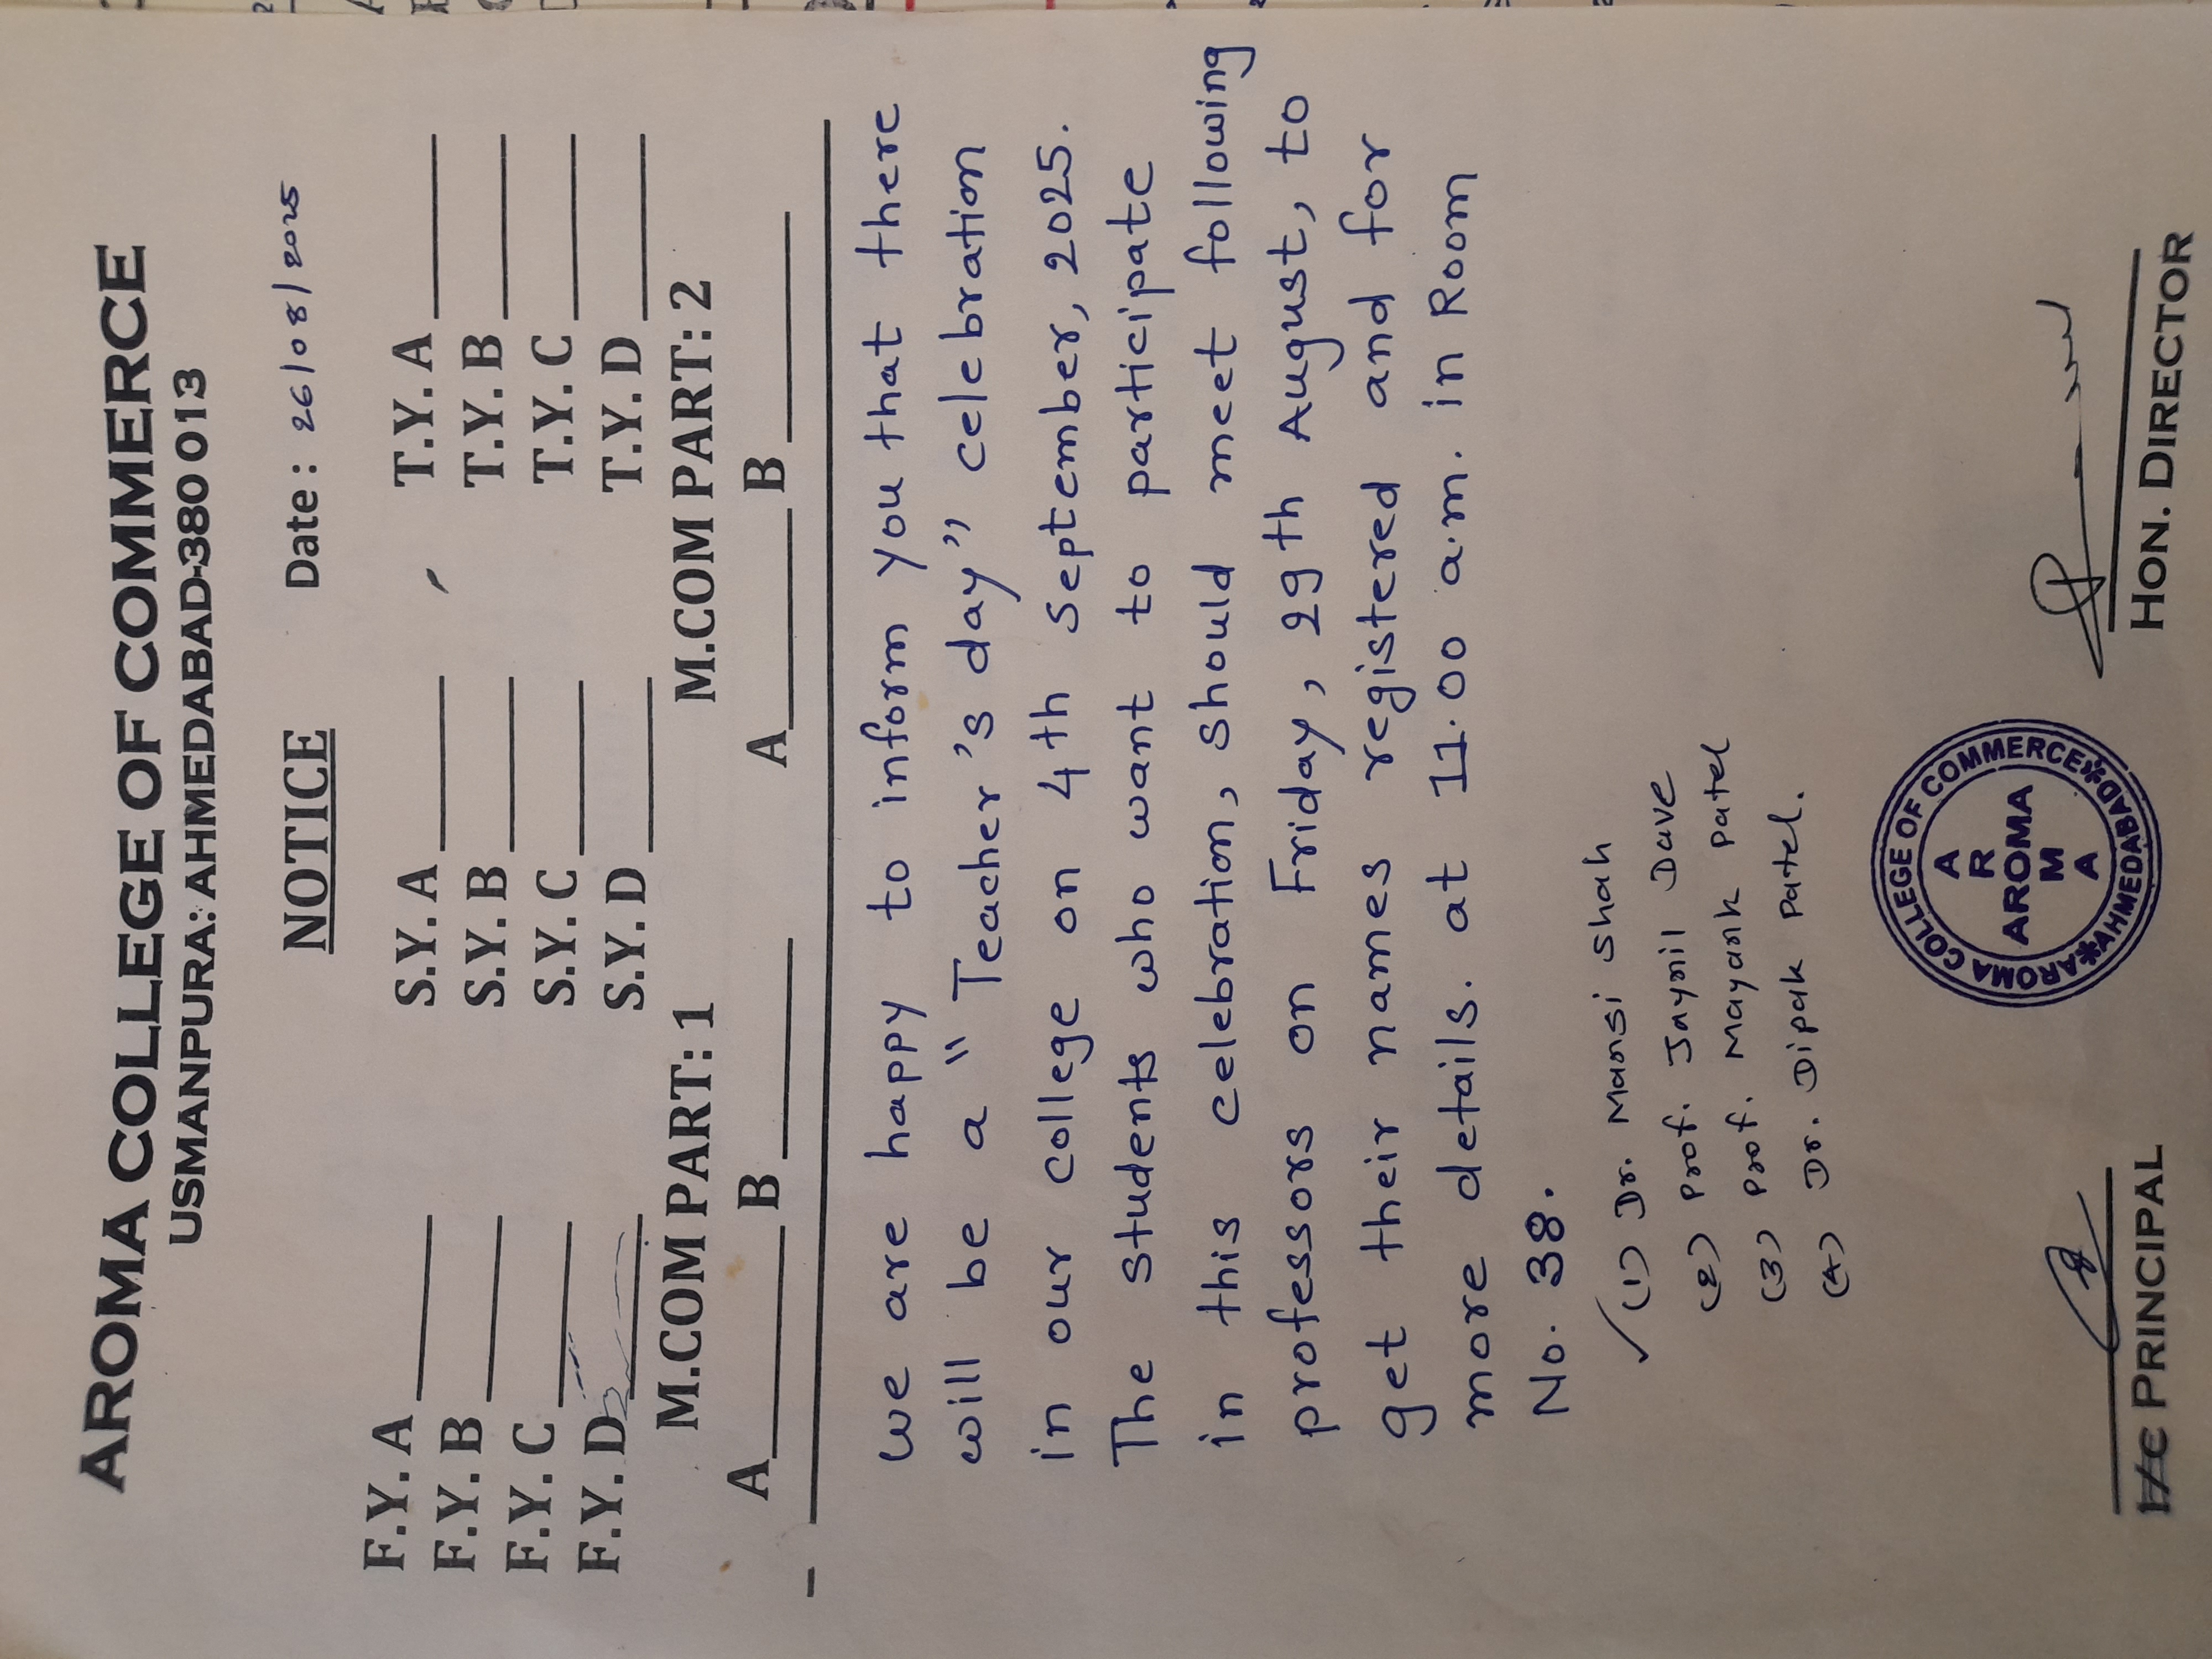 AROMA COLLEGE OF COMMERCE
USMANPURA: AHMEDABAD-380 013
NOTICE Date: 26/08/2025
F.Y. A S.Y. A T.Y. A
F.Y. B S.Y. B T.Y. B
F.Y. C S.Y. C T.Y. C
F.Y. D S.Y. D T.Y. D
M.COM PART: 1 M.COM PART: 2
A B A B
we are happy to inform you that there
will be a "Teacher's day" celebration
in our college on 4th September, 2025.
The students who want to participate
in this celebration, should meet following
professors on Friday, 29th August, to
get their names registered and for
more details. at 11.00 a.m. in Room
No. 38.
✓ (1) Dr. Mansi Shah
(2) Prof. Jaynil Dave
(3) Prof. Mayank Patel
(4) Dr. Dipak Patel.
AROMA COLLEGE OF COMMERCE
*AHMEDABAD*
A
R
AROMA
M
A
I/C PRINCIPAL HON. DIRECTOR